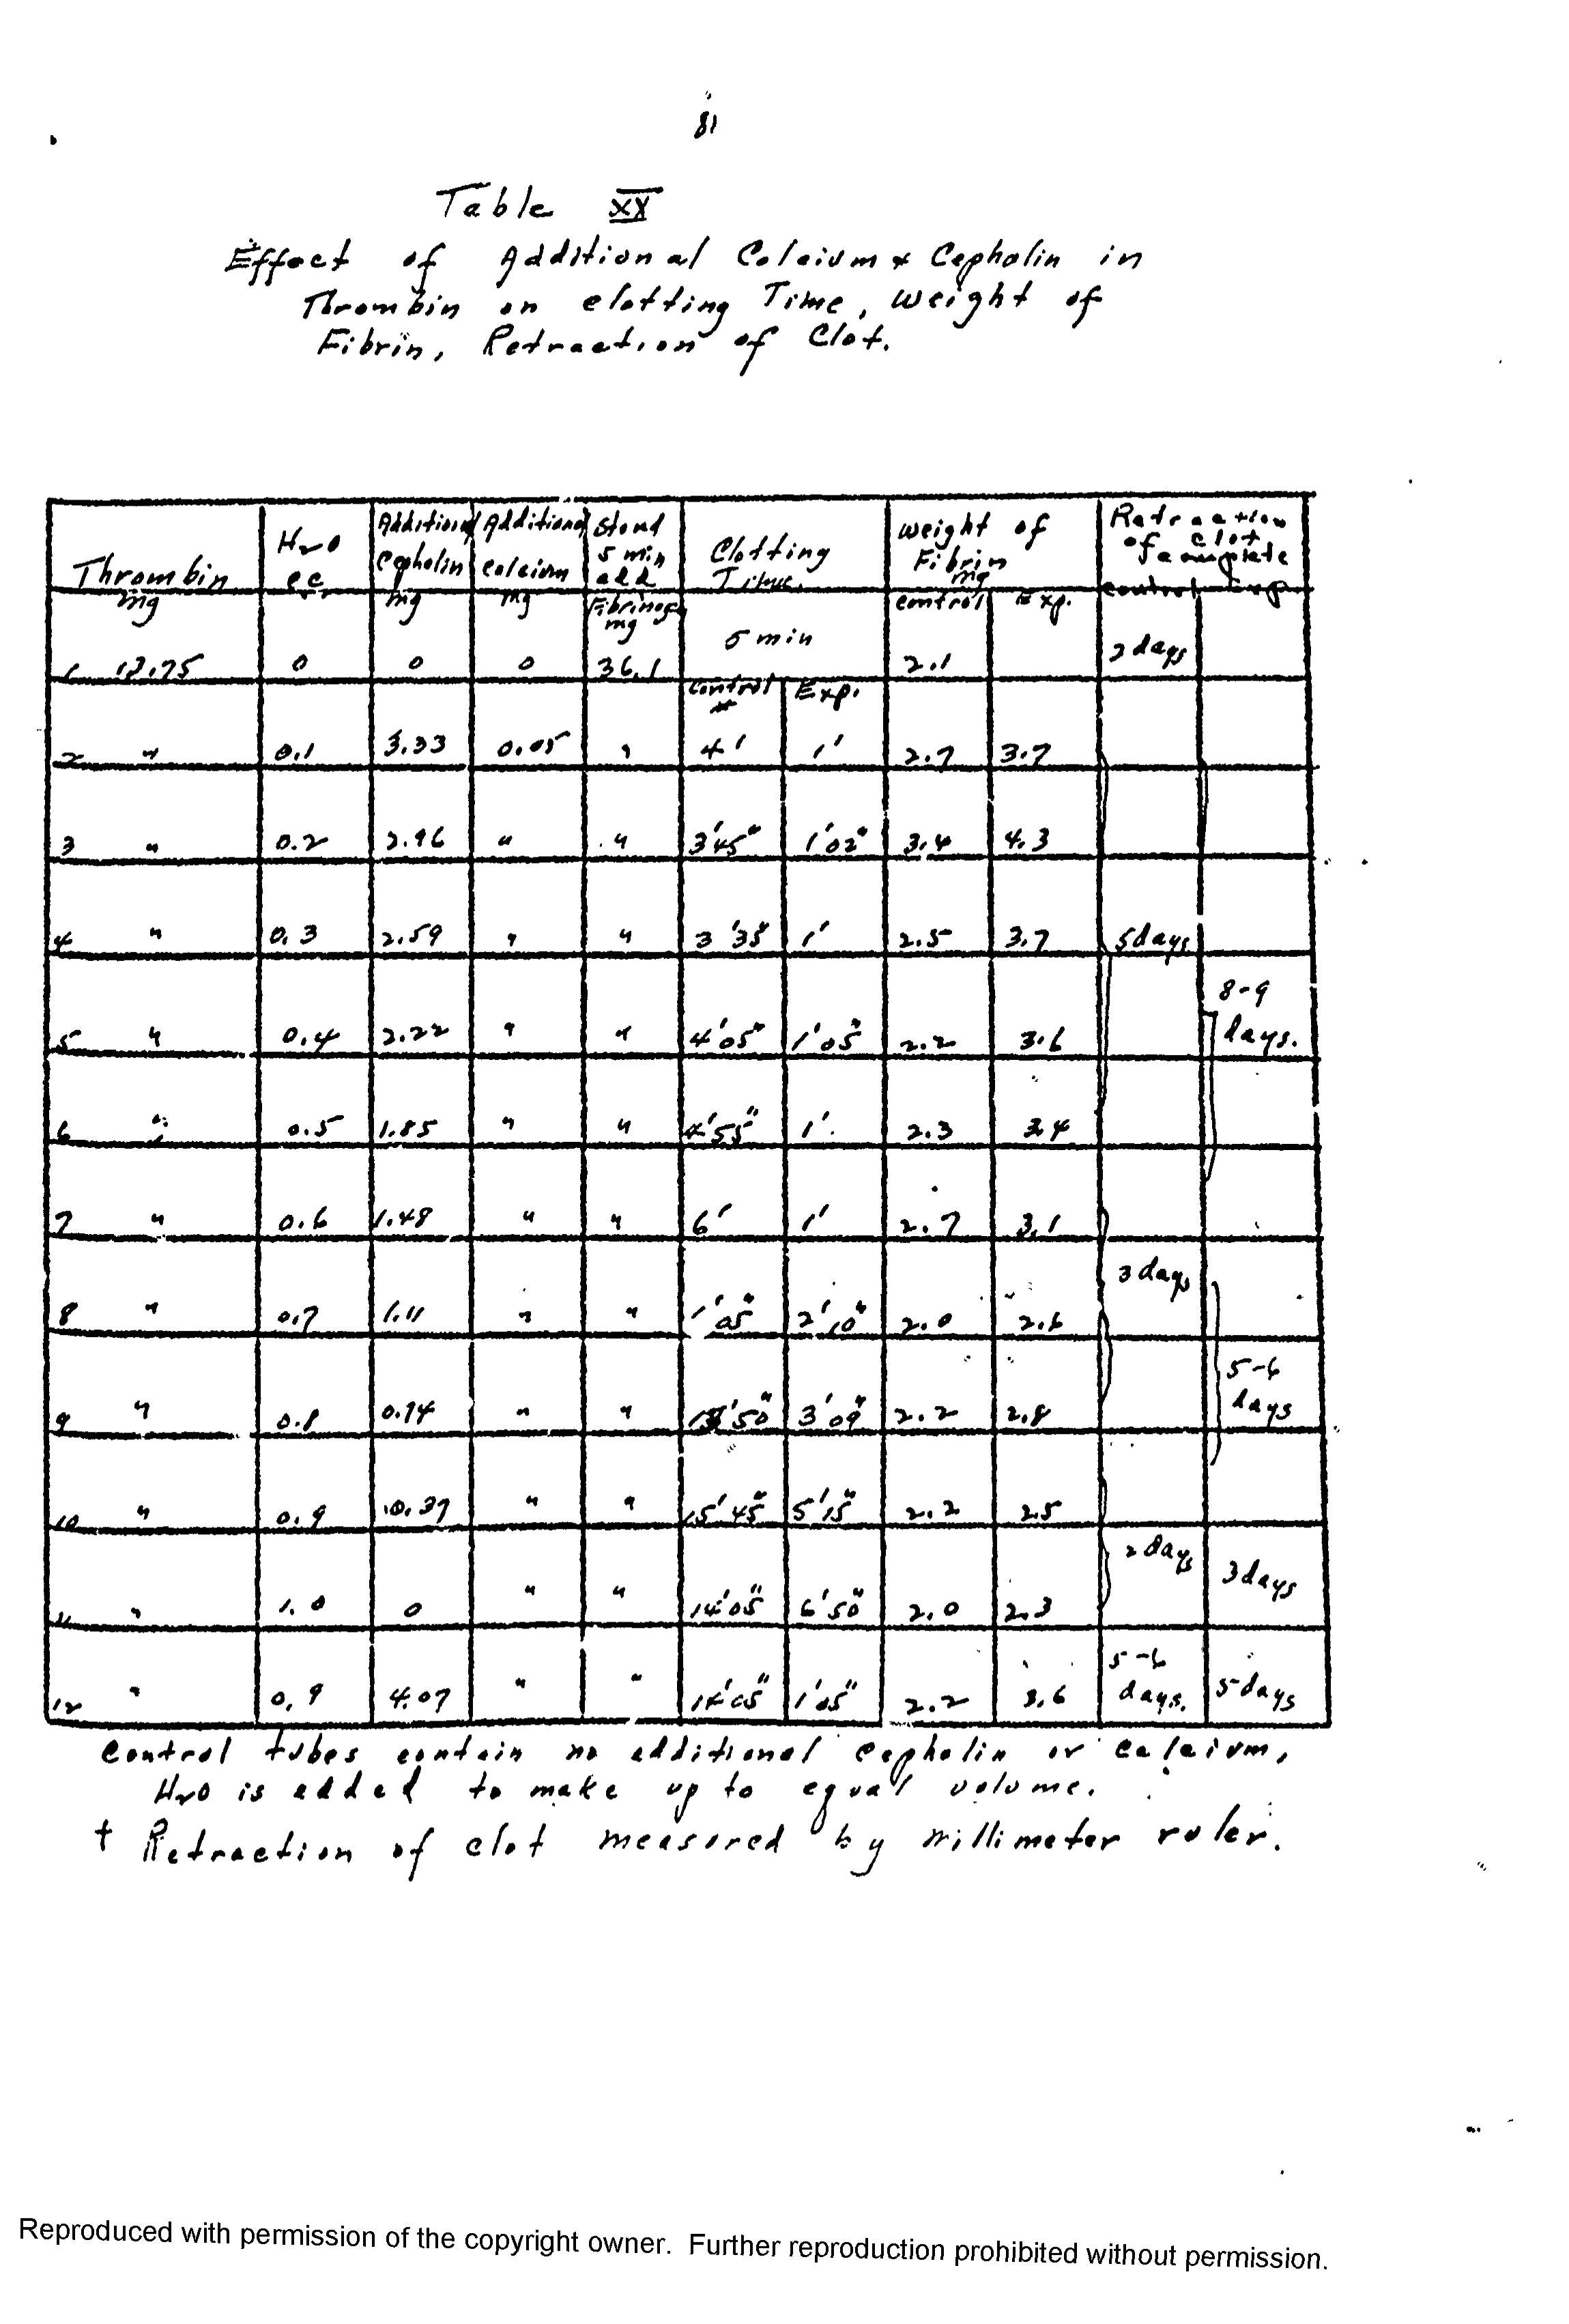 81
Table XX
Effect of Additional Calcium & Cephalin in
Thrombin on clotting Time, Weight of
Fibrin, Retraction of Clot.
Thrombin mg | H2O cc. | Additional Cephalin mg | Additional Calcium mg | Stand 5 min add Fibrinogen mg | Clotting Time. | Weight of Fibrin mg control Exp. | Retraction of clot complete control Exp.
1 | 0 | 0 | 0 | 36.1 | 5 min | 2.1 | 2 days
control * | Exp.
2 " | 0.1 | 3.33 | 0.05 | " | 4' | 1' | 2.7 | 3.7
3 " | 0.2 | 2.96 | " | " | 3'45" | 1'02" | 3.4 | 4.3
4 " | 0.3 | 2.59 | " | " | 3'35" | 1' | 2.5 | 3.7 | 5 days
5 " | 0.4 | 2.22 | " | " | 4'05" | 1'05" | 2.2 | 3.6 | 8-9 days.
6 " | 0.5 | 1.85 | " | " | 4'55" | 1' | 2.3 | 3.4
7 " | 0.6 | 1.48 | " | " | 6' | 1' | 2.7 | 3.1
8 " | 0.7 | 1.11 | " | " | 1'05" | 2'10" | 2.0 | 2.6 | 3 days
9 " | 0.8 | 0.74 | " | " | 3'09" | 2.2 | 2.8 | 5-6 days
10 " | 0.9 | 0.37 | " | " | 15'45" | 5'15" | 2.2 | 2.5
11 " | 1.0 | 0 | " | " | 14'05" | 6'50" | 2.0 | 2.3 | 2 days | 3 days
12 " | 0.9 | 4.07 | " | " | 14'05" | 1'05" | 2.2 | 3.6 | 5-6 days. | 5 days
Control tubes contain no additional cephalin or calcium,
H2O is added to make up to equal volume.
† Retraction of clot measured by millimeter ruler.
Reproduced with permission of the copyright owner. Further reproduction prohibited without permission.